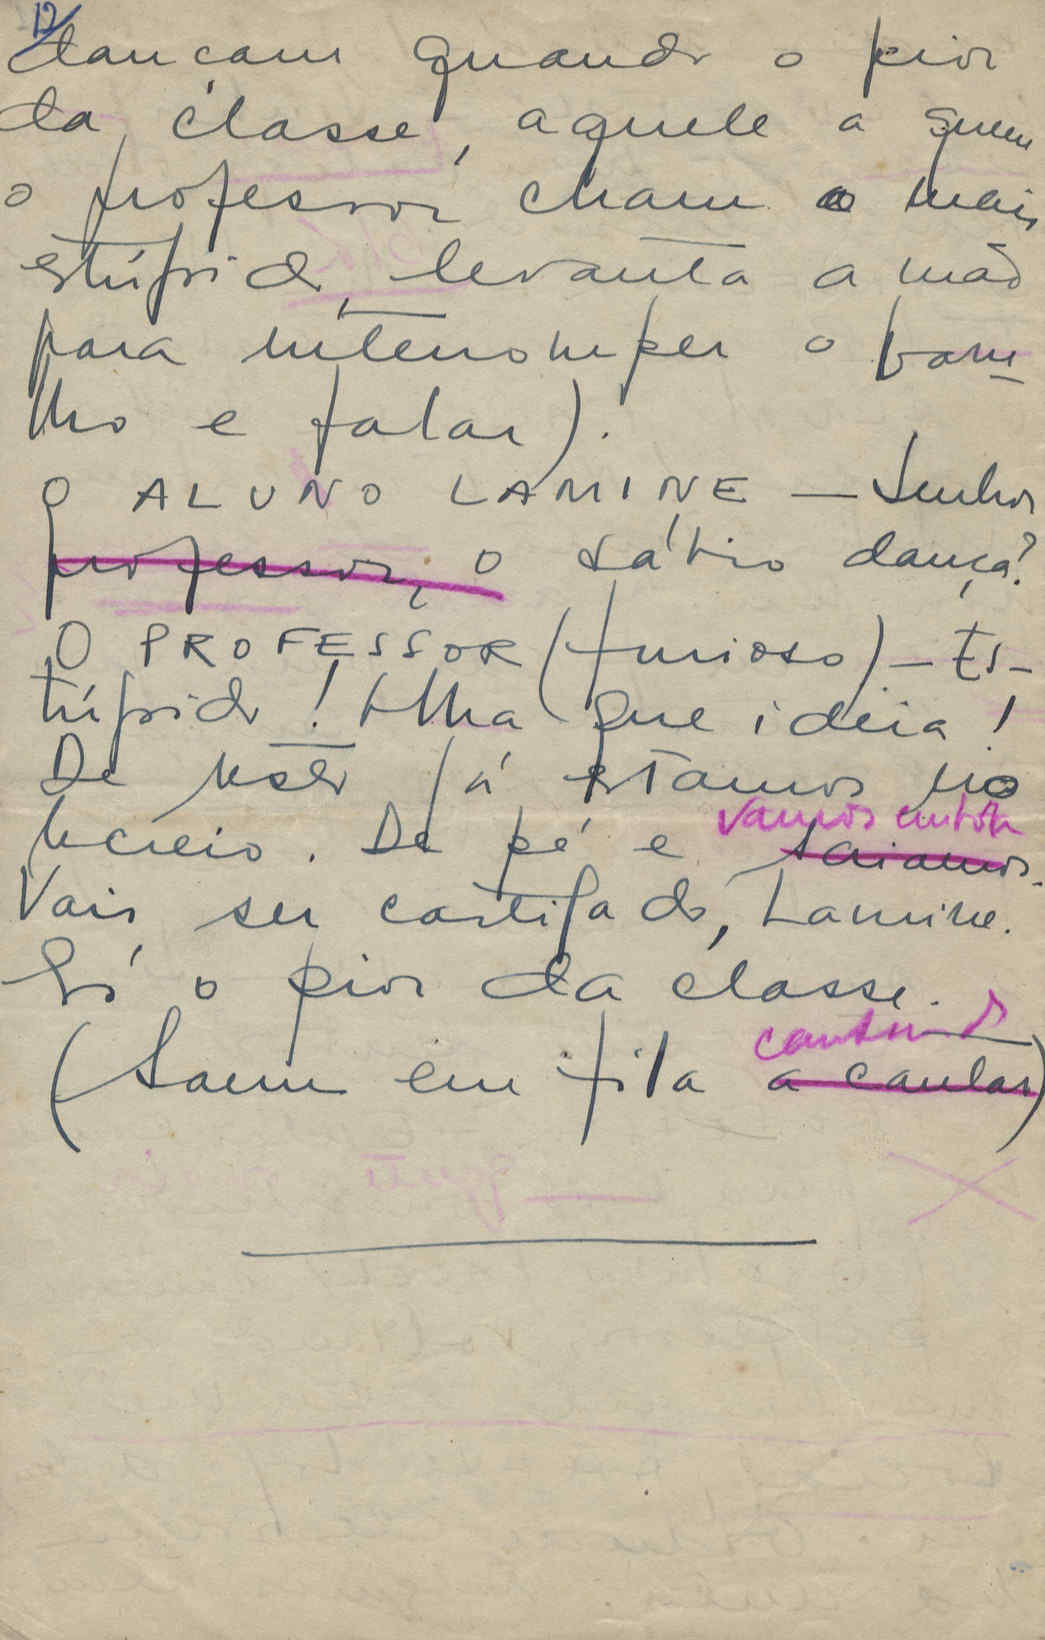 12
dançam quando o pior
da classe, aquele a quem
o professor chama o mais
estúpido, levanta a mão
para interromper o bara-
lho e falar).
O ALUNO LAMINE — Senhor
professor, o sábio dança?
O PROFESSOR (furioso) — Es-
túpido! Olha que ideia!
De resto já estamos no
recreio. De pé e saiamos.
vamos embora
Vais ser castigado, Lamine.
Só o pior da classe.
(Saem em fila a cantar)
cantando